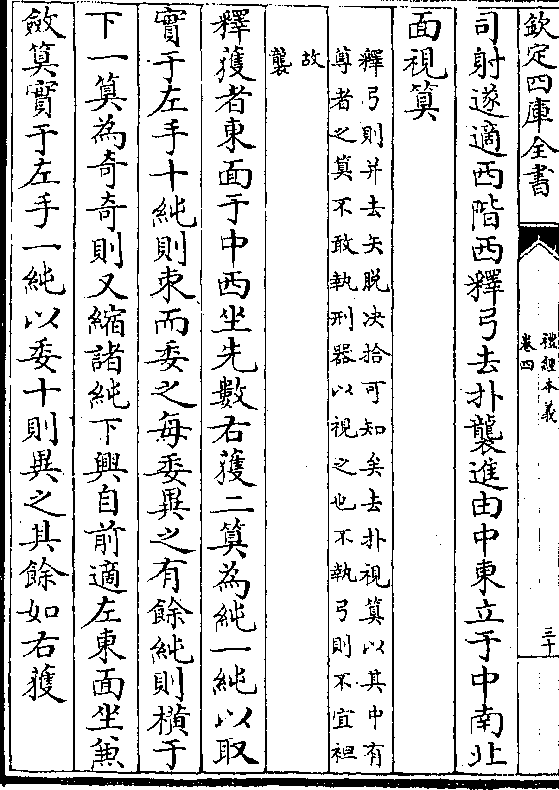 欽定四庫全書
禮經本義
卷四
三十
司射遂適西階西釋弓去扑襲進由中東立于中南北
面視算
釋弓則并去矢脱决拾可知矣去扑視算以其中有
尊者之算不敢執刑器以視之也不執弓則不宜袒
故
襲
釋獲者東面于中西坐先數右獲二算為純一純以取
實于左手十純則朿而委之每委異之有餘純則橫于
下一算為奇奇則又縮諸純下興自前適左東面坐兼
斂算實于左手一純以委十則異之其餘如右獲